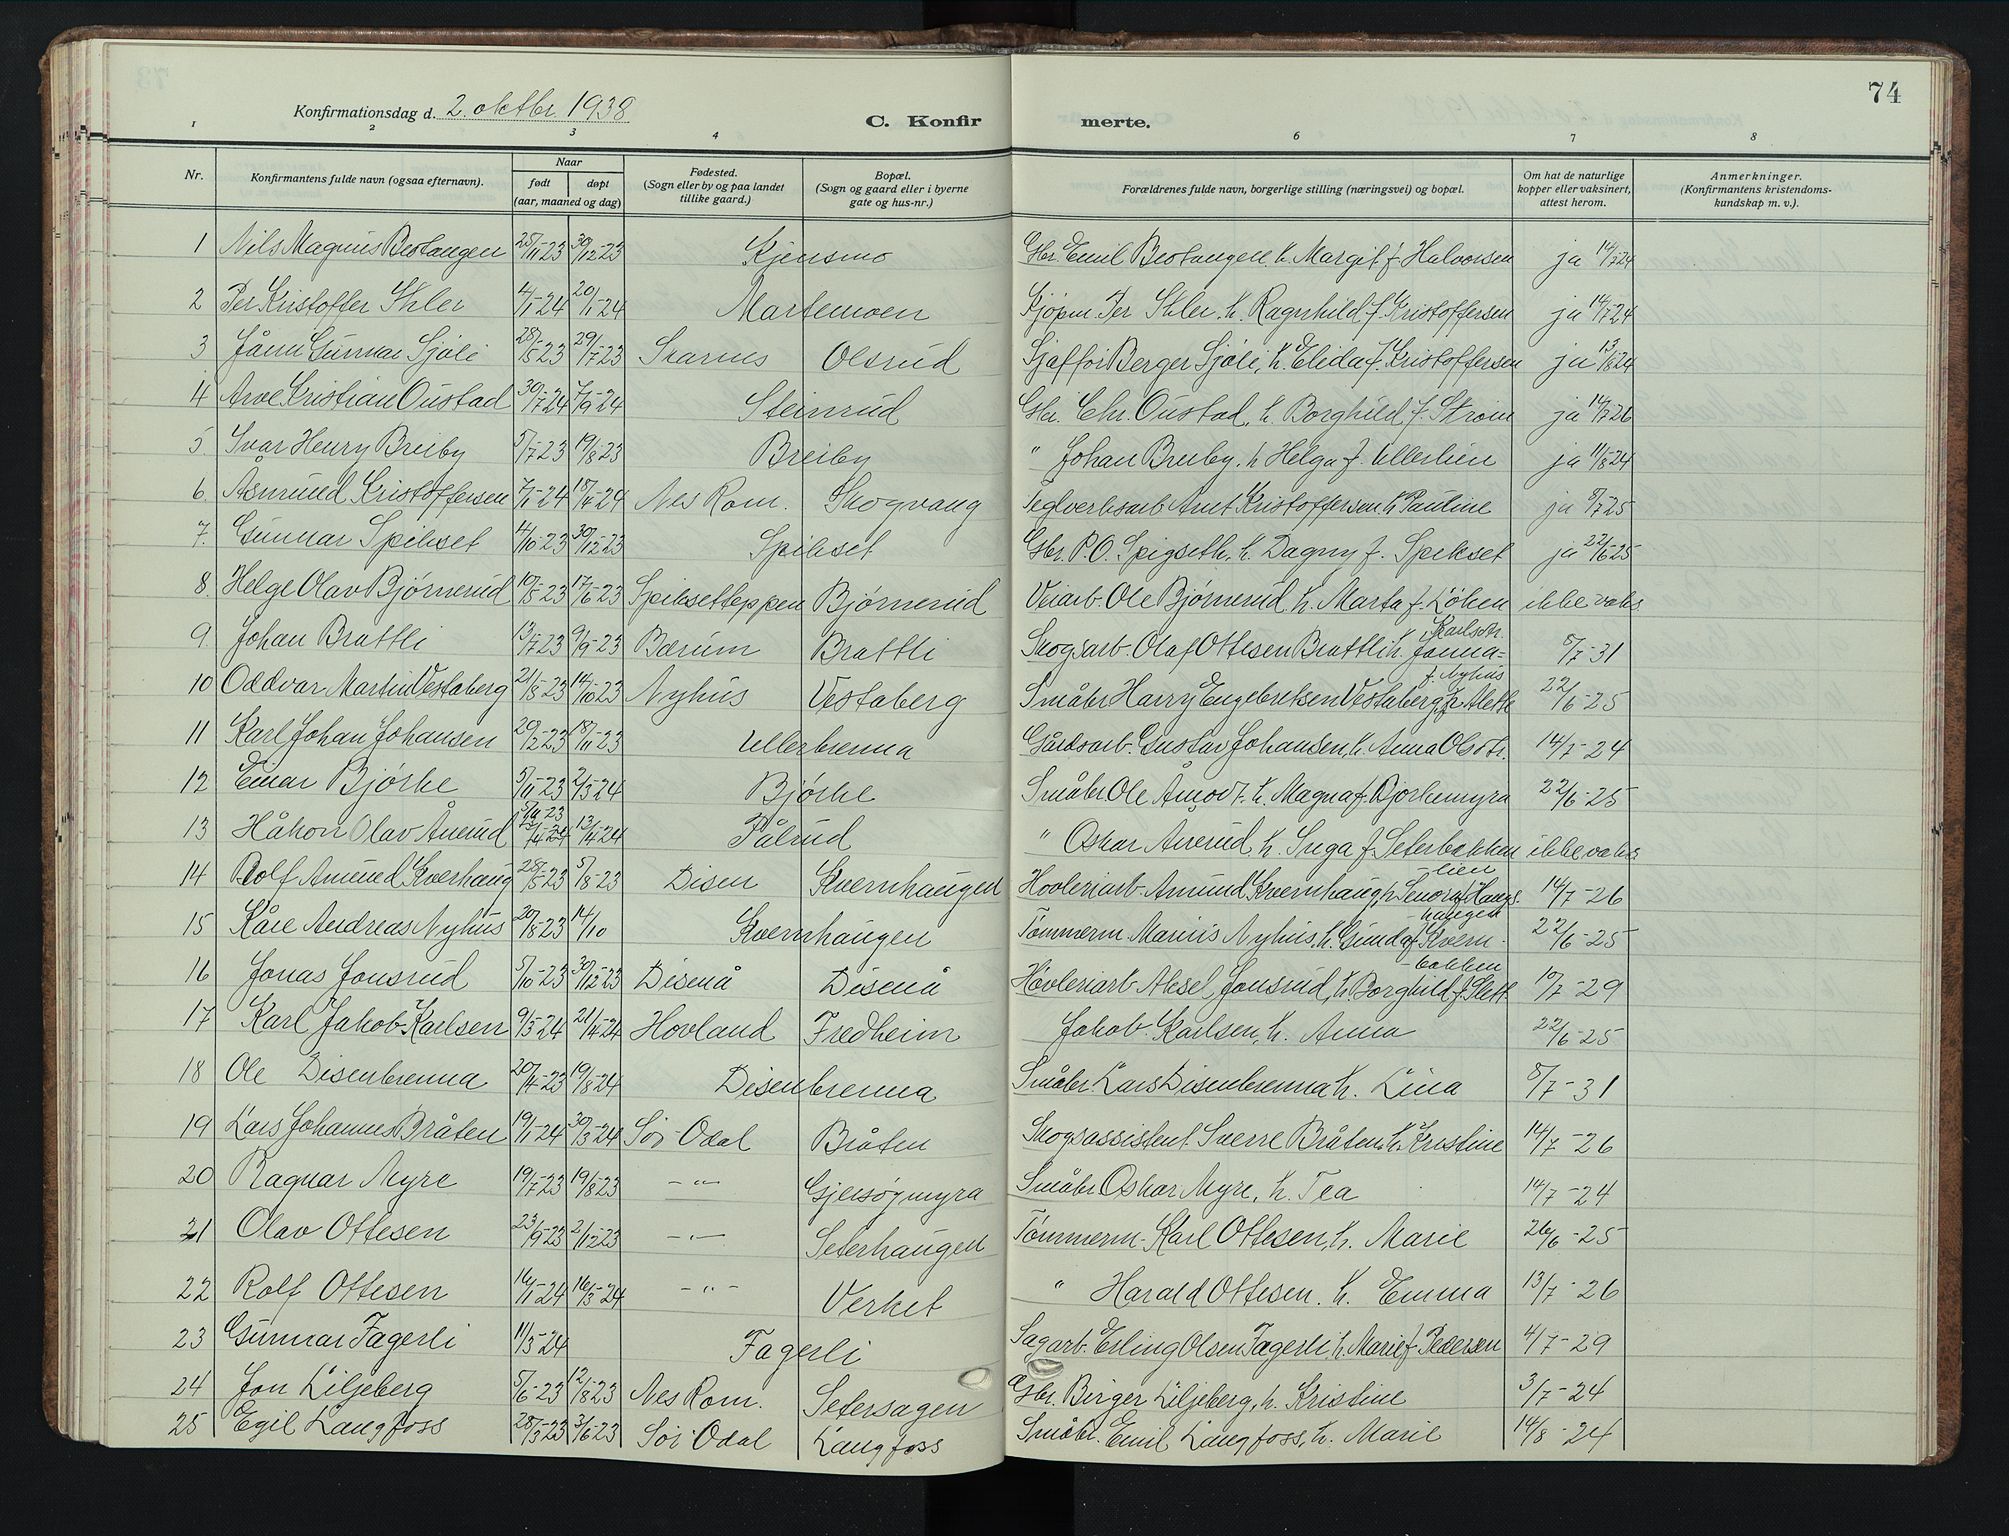 74
Konfirmationsdag d. 2. oktbr. 1938
C. Konfirmerte.
1 2 3 4 6 7 8
Nr. | Konfirmantens fulde navn (ogsaa efternavn). | Naar født døpt (aar, maaned og dag) | Fødested. (Sogn eller by og paa landet tillike gaard.) | Bopæl. (Sogn og gaard eller i byerne gate og hus-nr.) | Forældrenes fulde navn, borgerlige stilling (næringsvei) og bopæl. | Om hat de naturlige kopper eller vaksinert, attest herom. | Anmerkninger. (Konfirmantens kristendomskundskap m. v.).
1 Nils Magnus Brotangen 25/11-23 30/12-23 Kjensmo Gbr. Emil Brotangen, h. Margit f. Halvorsen ja 14/7 24
2 Per Kristoffer Ihler 4/1-24 20/1-24 Martemoen Kjøpm. Per Ihler, h. Ragnhild f. Kristoffersen ja 14/7-24
3 Jånn Gunnar Sjøli 28/5-23 29/7-23 Skarnes Olsrud Sjaffør Berger Sjøli, h. Elida f. Kristoffersen ja 13/8 24
4 Arve Kristian Oustad 30/7-24 7/9-24 Steinrud Gbr. Chr. Oustad, h. Borghild f. Strøm ja 14/7 26
5. Ivar Henry Breiby 5/7-23 19/8-23 Breiby " Johan Breiby, h. Helga f. Ullerlien ja 11/8-24
6. Asmund Kristoffersen 7/1-24 18/4-24 Nes Rom. Skogvang Teglverksarb. Arnt Kristoffersen h. Pauline ja 8/7-25
7. Gunnar Spikset 4/10-23 30/12-23 Spikset Gbr. P.O. Spigseth, h. Dagny f. Spikset ja 22/6-25
8. Helge Olav Bjørnerud 10/5-23 17/6-23 Spiksetteppen Bjørnerud Veiarb. Ole Bjørnerud h. Marta f. Løken ikke vaks.
9. Johan Brattli 13/7-23 9/9-23 Bærum Brattli Skogsarb. Olaf Ottesen Brattli h. Janna Karlsdtr. 8/7-31
10 Oddvar Martin Vestaberg 21/8-23 14/10-23 Nyhus Vestaberg Småbr. Harry Engebretsen Vestaberg, h. Alette f. Nyhus 22/6-25
11 Karl Johan Johansen 20/2-23 18/11-23 Ullerbrenna Gårdsarb. Gustav Johansen, h. Anna Olsdtr. 14/7-24
12 Einar Bjørke 5/11-23 2/3-24 Bjørke Småbr. Ole Åmodt. h. Magna f. Bjørkemyra 22/6-25
13 Håkon Olav Ånerud 13/4-24 Pålrud " Oskar Ånerud. h. Inga f. Seterbakken ikke vaks.
14 Rolf Amund Kverhaug 28/5-23 5/8-23 Disen Kvernhaugen Høvleriarb. Amund Kvernhaug, h. Lenora f. Haugslien 14/7-26
15 Kåre Andreas Nyhus 20/8-23 14/10 Kvernhaugen Tømmerm. Marius Nyhus, h. Gunda f. Kvernhaugen 22/6-25
16 Jonas Jonsrud 5/10-23 30/12-23 Disenå Disenå Høvleriarb. Aksel Jonsrud, h. Borghild f. Slettbakken 10/7-29
17 Karl Jakob Karlsen 9/3-24 21/4-24 Hovland Fredheim Jakob Karlsen, h. Anna 22/6-25
18 Ole Disenbrenna 20/4-23 19/8-24 Disenbrenna Småbr. Lars Disenbrenna h. Lina 8/7-31
19 Lars Johannes Bråten 19/1-24 30/3-24 Sør-Odal Bråten Skogsassistent Sverre Bråten, h. Kristine 14/7-26
20 Ragnar Myre 19/7-23 19/8-23 -"- Gjersøymyra Småbr. Oskar Myre, h. Tea 14/7-24
21 Olav Ottesen 23/9-23 2/12-23 -"- Seterhaugen Tømmerm. Karl Ottesen, h. Marie 26/6-25
22 Rolf Ottesen 16/1-24 16/3-24 -"- Verket " Harald Ottesen. h. Emma 13/7-26
23 Gunnar Fagerli 11/3-24 Fagerli Sagarb. Erling Olsen Fagerli, h. Marie f. Pedersen 4/7-29
24 Jon Liljeberg 5/6-23 12/8-23 Nes Rom. Setersagen Gbr. Birger Liljeberg, h. Kristine 3/7-24
25 Egil Langfoss 28/3-23 3/6-23 Sør-Odal Langfoss Småbr. Emil Langfoss, h. Marie 14/8-24